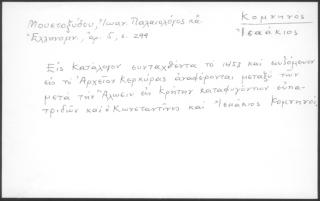 Κομνηνος
Ἰσαάκιος
Μουστοξύδου, Ἰωαν. Παλαιολόγος κἄ
Ἑλληνομν., ἀρ. 5, σ. 299
Εἰς κατάλογον συνταχθέντα τό 1453 καί σωζόμενον
εἰς τό Ἀρχεῖον Κερκύρας ἀναφέρονται μεταξύ τῶν
μετά τήν Ἅλωσιν εἰς Κρήτην καταφυγόντων εὐπα-
τριδῶν καί ὁ Κωνσταντῖνος καί Ἰσαάκιος Κομνηνοί